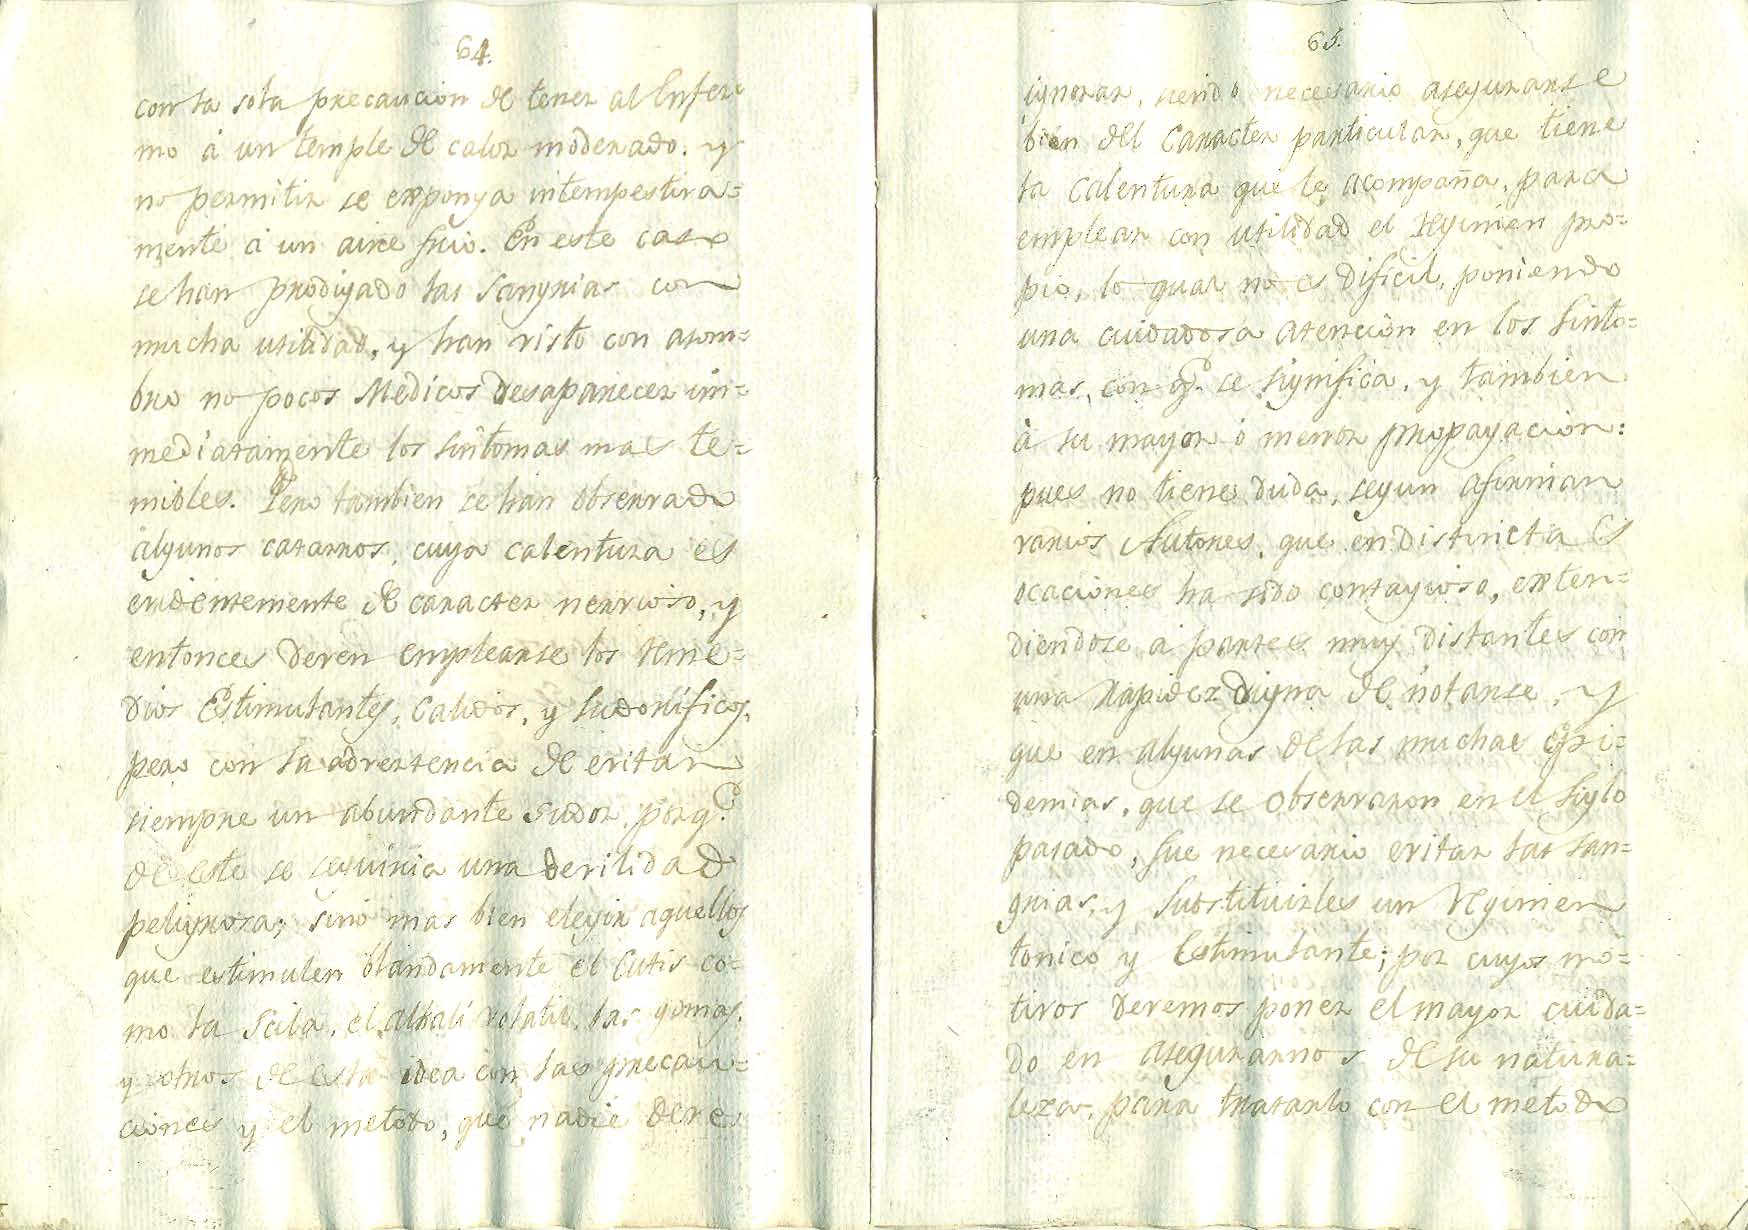 64.
con la sola precaucion de tener al Enfer-
mo á un temple de calor moderado, y
no permitir se exponga intempestiva=
mente á un aire frio. En este caso
se han prodigado las Sangrias con
mucha utilidad, y han visto con asom=
bro no pocos Medicos desaparecer im=
mediatamente los sintomas mas te=
mibles. Pero tambien se han observado
algunos catarros, cuya calentura es
evidentemente de caracter nervioso, y
entonces deven emplearse los reme=
dios Estimulantes, Calidos, y sudorificos,
pero con la advertencia de evitar
siempre un abundante sudor, porq.e
de este se seguiria una devilidad
peligrosa; sinó mas bien elegir aquellos
que estimulen blandamente el Cutis co=
mo la Scila, el alkali volatil, las gomas,
y otros de esta idea con las precau=
ciones y el metodo, que nadie deve
65.
ignorar, siendo necesario asegurarse
bien del Caracter particular, que tiene
la Calentura que le acompaña, para
emplear con utilidad el regimen pro=
pio, lo qual no es dificil, poniendo
una cuidadosa atencion en los sinto=
mas, con q.e se significa, y tambien
á su mayor ó menor propagacion:
pues no tiene duda, segun afirman
varios Autores, que en distinctas
ocaciones ha sido contagioso, exten=
diendose á partes muy distantes con
una rapidez digna de notarse, y
que en algunas de las muchas Epi=
demias, que se observaron en el siglo
pasado, fue necesario evitar las san=
grias, y substituirles un regimen
tonico y Estimulante; por cuyos mo=
tivos devemos poner el mayor cuida=
do en asegurarnos de su natura=
leza, para tratarlo con el metodo